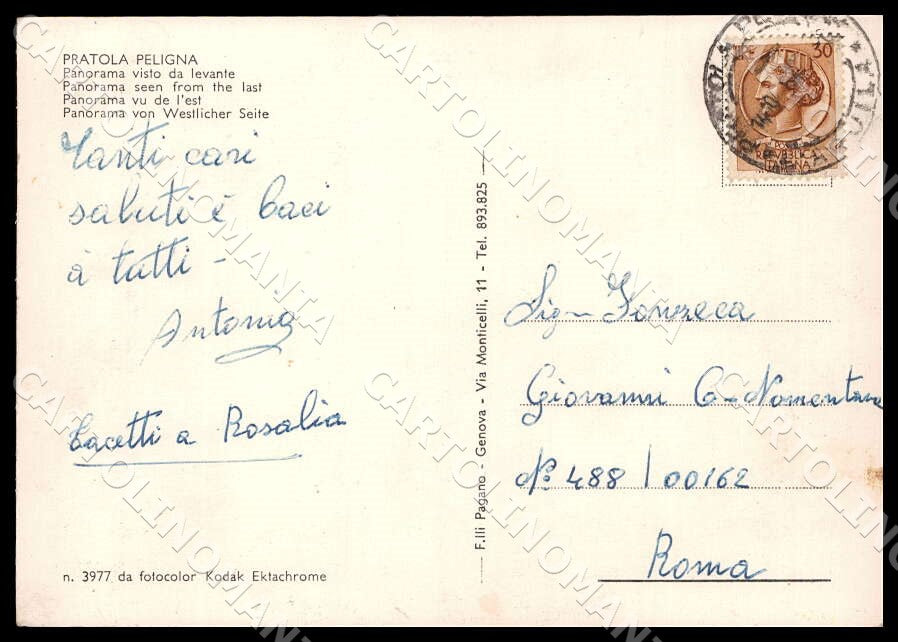 PRATOLA PELIGNA
Panorama visto da levante
Panorama seen from the last
Panorama vu de l'est
Panorama von Westlicher Seite
Tanti cari
saluti è baci
à tutti -
Antonia
bacetti a Rosalia
n. 3977 da fotocolor Kodak Ektachrome
F.lli Pagano - Genova - Via Monticelli, 11 - Tel. 893.825
30
REPVBBLICA
ITALIANA
Sig- Fonzeca
Giovanni C-Nomentana
N° 488 / 00162
Roma
CARTOLINOMANIA